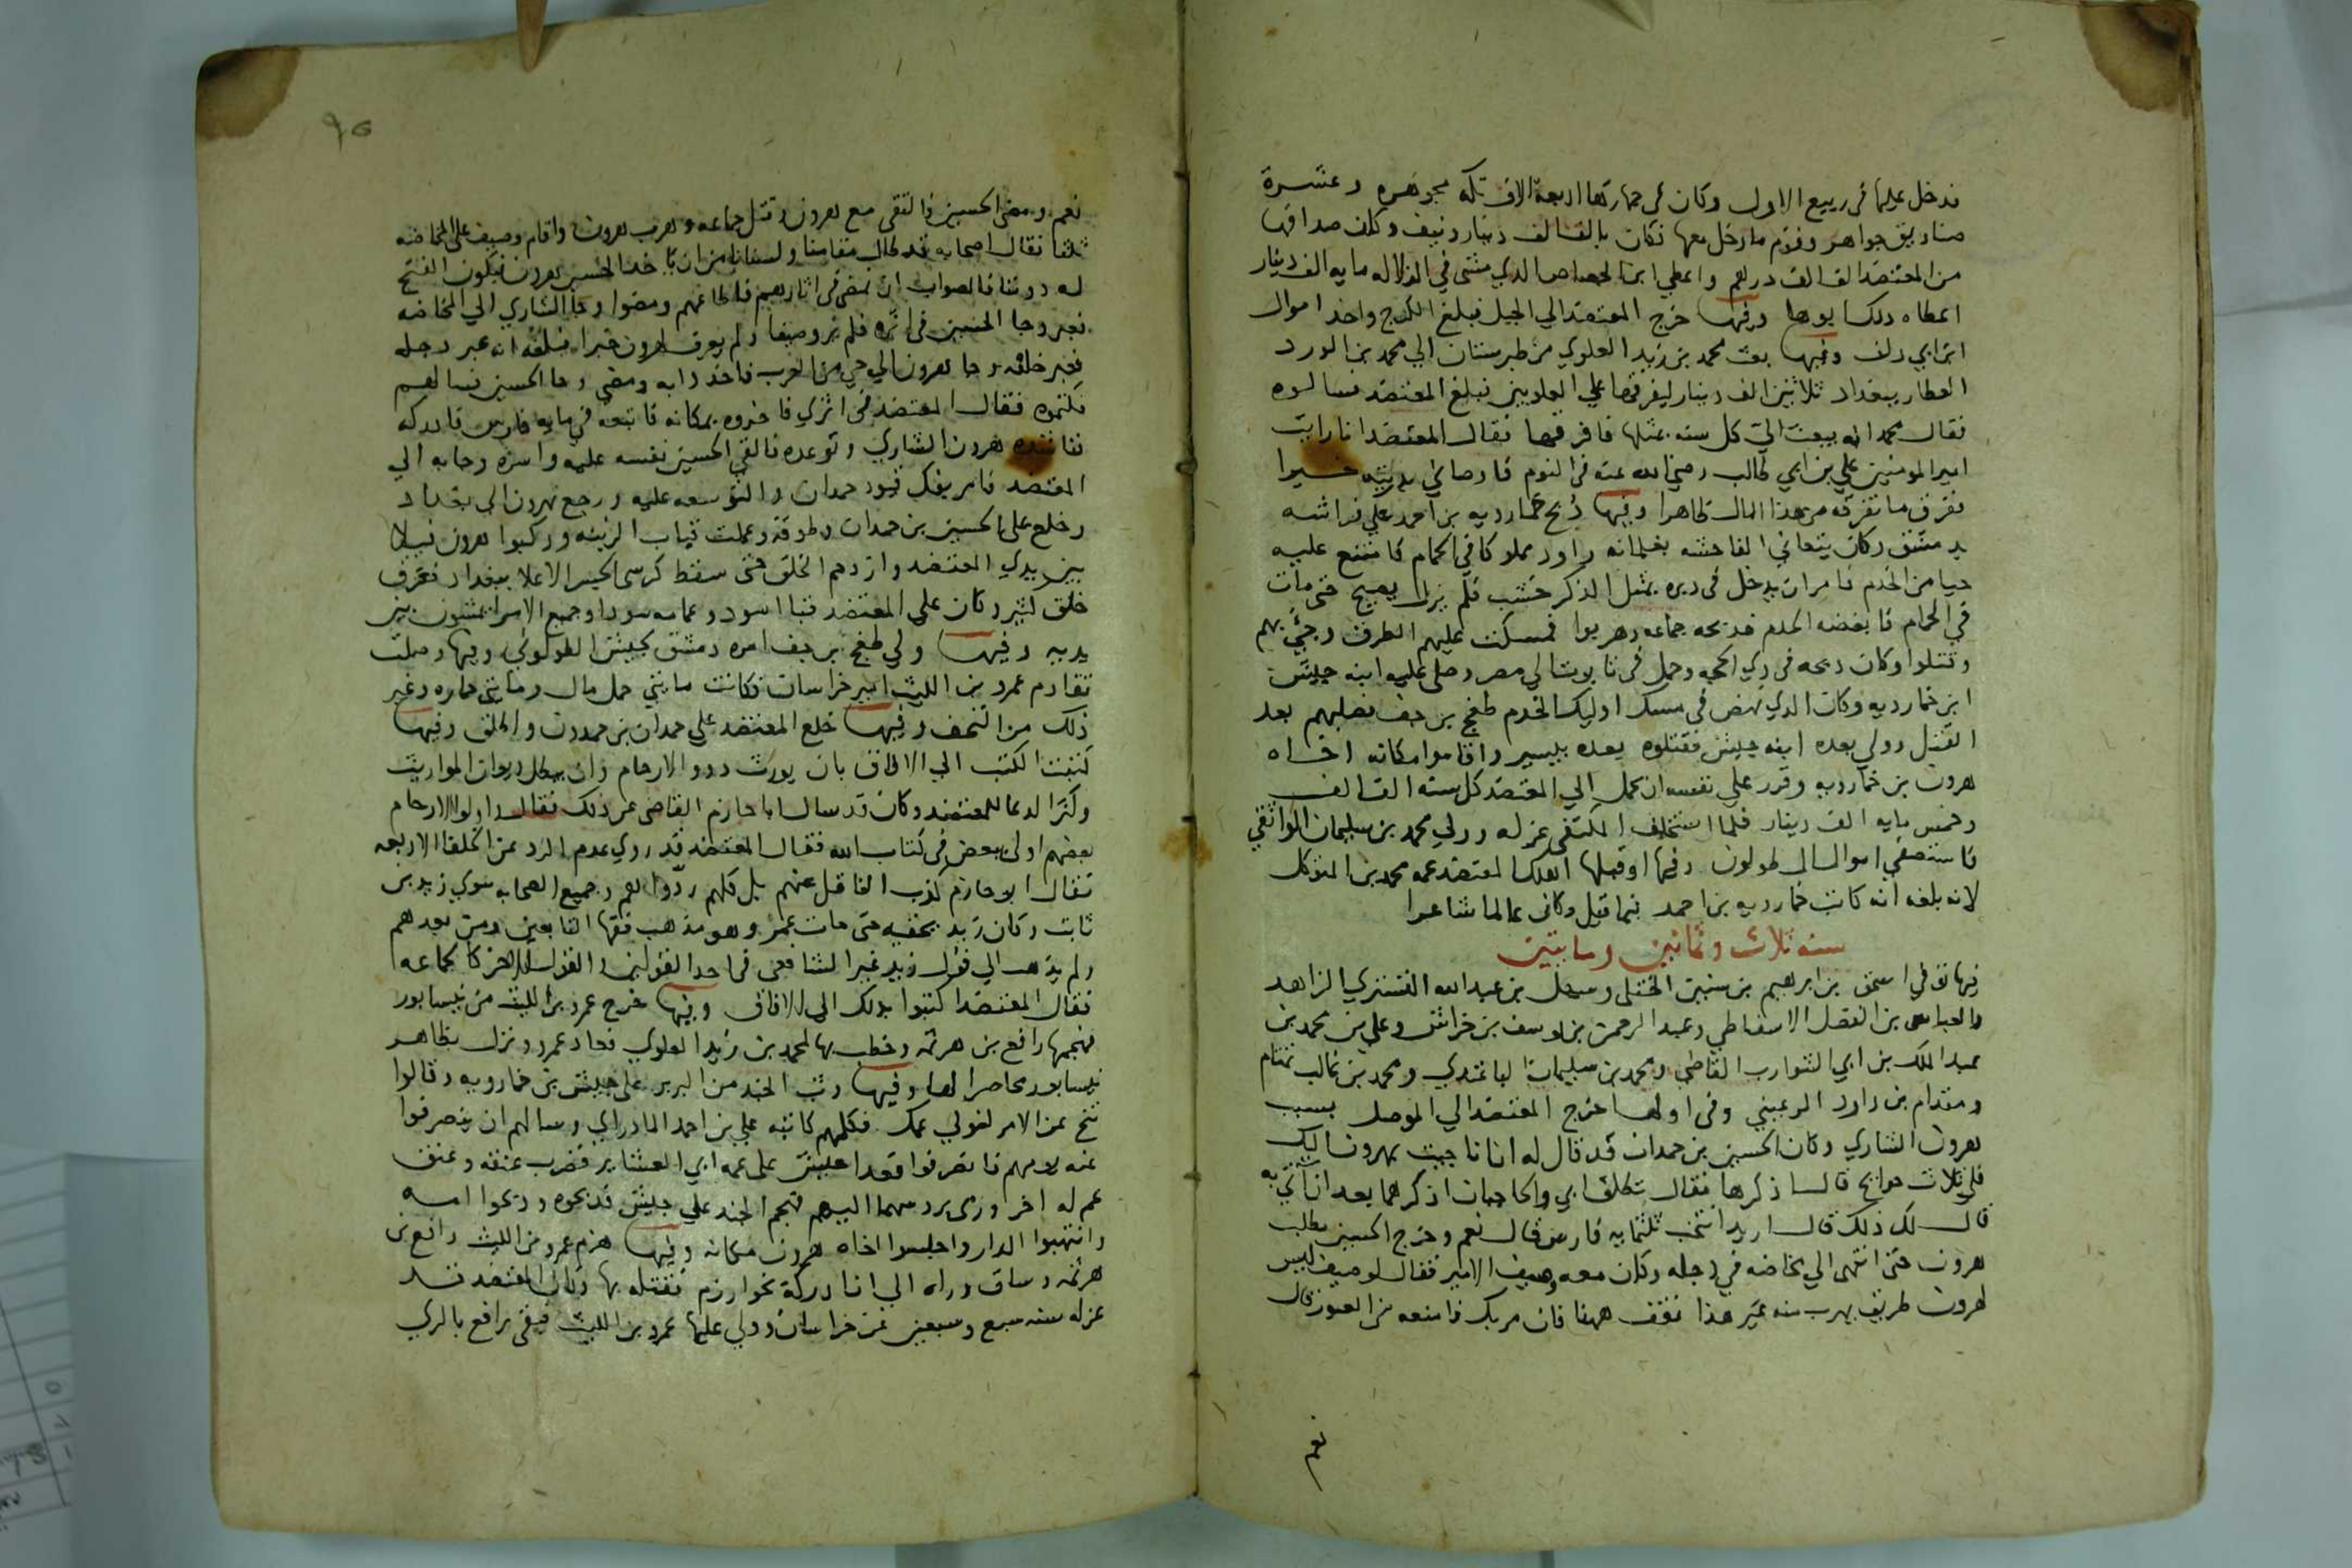 فدخل عليها في ربيع الاول وكان في جهازها اربعة الاف تكه مجوهره وعشرة
صناديق جواهر وقوم ما دخل معها فكان بالف الف دينار ونيف وكان صداقها
من المعتضد الف الف درهم واعطي ابن الجصاص الذي مشى في الدلاله مايه الف دينار
اعطاه ذلك ابوها وفيها خرج المعتضد الي الجبل فبلغ الكرج واخذ اموال
ابن ابي دلف وفيها بعث محمد بن زيد العلوي من طبرستان الي محمد بن الورد
العطار ببغداد ثلاثين الف دينار ليفرقها علي العلويين فبلغ المعتضد فسالوه
فقال محمد انه يبعث الي كل سنه بمثلها فافرقها فقال المعتضد انا رايت
امير المومنين علي بن ابي طالب رضي الله عنه في النوم فاوصاني بذريته خيرا
ففرق ما تفرقه من هذا المال ظاهرا وفيها ذبح خمارويه بن احمد علي فراشه
بدمشق وكان يتعانى الفاحشه بغلمانه راود مملوكا في الحمام فامتنع عليه
حيا من الخدم فامر ان يدخل في دبره بمثل الذكر خشب فلم يزل يصيح حتى مات
في الحمام فابغضه الخدم فذبحه جماعه وهربوا فمسكت عليهم الطرق وجيء بهم
وقتلوا وكان ذبحه في ذي الحجه وحمل في تابوت الي مصر وصلى عليه ابنه جيش
ابن خمارويه وكان الذي نهض في مسك اوليك الخدم طغج بن جف فصلبهم بعد
القتل وولي بعده ابنه جيش فقتلوه بعده بيسير واقاموا مكانه اخاه
هرون بن خمارويه وقرر علي نفسه ان يحمل الي المعتضد كل سنه الف الف
وخمس مايه الف دينار فلما استخلف المكتفي عزله وولي محمد بن سليمان الواثقي
فاستصفي اموال ال طولون وفيها او قبلها اهلك المعتضد عمه محمد بن المتوكل
لانه بلغه انه كاتب خمارويه بن احمد فيما قيل وكان عالما شاعرا
سنه ثلاث وثمانين ومايتين
فيها توفي اسحق بن ابرهيم بن سنين الختلى وسهل بن عبد الله التستري الزاهد
والعباس بن الفضل الاسفاطي وعبد الرحمن بن يوسف بن خراش وعلي بن محمد بن
عبد الملك بن ابي الشوارب القاضي ومحمد بن سليمان الباغندي ومحمد بن غالب تمتام
ومقدام بن داود الرعيني وفي اولها خرج المعتضد الي الموصل بسبب
هرون الشاري وكان الحسين بن حمدان قد قال له ان انا جيت بهرون اليك
فلي ثلاث حوايج قال اذكرها فقال تطلق ابي والحاجتان اذكرهما بعد ان اتي به
قال لك ذلك قال اريد انتخب ثلثمايه فارس قال نعم وخرج الحسين يطلب
هرون حتى انتهى الي مخاضه في دجله وكان معه وصيف الامير فقال لوصيف ليس
لهرون طريق يهرب منه غير هذا فقف ههنا فان مر بك فامنعه من العبور قال
نعم
٩٥
نعم ومضى الحسين فالتقى مع هرون وقتل جماعه وهرب هرون واقام وصيف على المخاضه
ثلثا فقال اصحابه قد طال مقامنا ولسنا نامن ان ياخذ الحسين هرون فيكون الفتح
له دوننا فالصواب ان نمضى في اثارهم فاطاعهم ومضوا وجا الشاري الي المخاضه
فعبر وجا الحسين في اثره فلم ير وصيفا ولم يعرف لهرون خبرا فبلغه انه عبر دجله
فعبر خلفه وجا هرون الي حي من العرب فاخذ دابه ومضى وجا الحسين فسالهم
فكتموه فقال المعتضد في اثري فاخبروه بمكانه فاتبعه في مايه فارس فادركه
فناشده هرون الشاري وتوعده فالقى الحسين نفسه عليه واسره وجا به الي
المعتضد فامر بفك قيود حمدان والتوسعه عليه ورجع بهرون الي بغداد
وخلع على الحسين بن حمدان وطوقه وعملت قباب الزينه وركبوا هرون فيلا
بين يدي المعتضد وازدحم الخلق حتى سقط كرسى الجسر الاعلا ببغداد فغرق
خلق كثير وكان على المعتضد قبا اسود وعمامه سودا وجميع الامرا يمشون بين
يديه وفيها ولي طغج بن جف امره دمشق لجيش الطولوني وفيها وصلت
تقادم عمرو بن الليث امير خراسان فكانت مايتي حمل مال ومايتي حماره وغير
ذلك من التحف وفيها خلع المعتضد على حمدان بن حمدون واطلق وفيها
كتبت الكتب الي الافاق بان يورث ذوو الارحام وان يبطل ديوان المواريث
وكثر الدعا للمعتضد وكان قد سال ابا حازم القاضى عن ذلك فقال واولوا الارحام
بعضهم اولى ببعض في كتاب الله فقال المعتضد قد روي عدم الرد عن الخلفا الاربعه
فقال ابو حازم كذب الناقل عنهم بل كلهم ردوا هم وجميع الصحابه سوي زيد بن
ثابت وكان زيد يخفيه حتى مات عمر وهو مذهب فقها التابعين ومن بعدهم
ولم يذهب الي قول زيد غير الشافعى في احد القولين والقول الاخر كالجماعه
فقال المعتضد اكتبوا بذلك الي الافاق وفيها خرج عمرو بن الليث من نيسابور
فهجمها رافع بن هرثمه وخطب بها لمحمد بن زيد العلوي فعاد عمرو ونزل بظاهر
نيسابور محاصرا لها وفيها وثب الجند من البربر على جيش بن خمارويه وقالوا
تنح عن الامر لنولي عمك فكلمهم كاتبه علي بن احمد المادراي وسالهم ان ينصرفوا
عنه يومهم فانصرفوا فغدا جيش على عمه ابي العشاير فضرب عنقه وعنق
عم له اخر ورمى بروسهما اليهم فهجم الجند علي جيش فذبحوه وذبحوا امه
وانتهبوا الدار واجلسوا اخاه هرون مكانه وفيها هزم عمرو بن الليث رافع بن
هرثمه وساق وراه الي ان ادركه بخوارزم فقتله بها وكان المعتضد قد
عزله سنه سبع وسبعين عن خراسان وولي عليها عمرو بن الليث فبقى رافع بالري